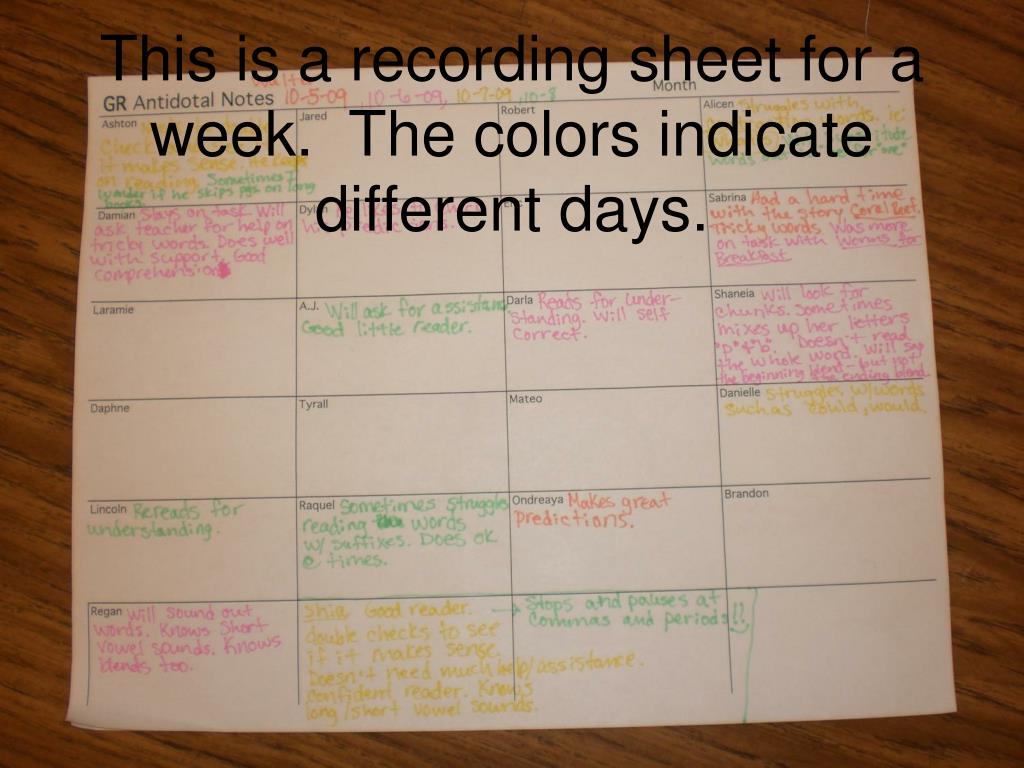 This is a recording sheet for a
week. The colors indicate
different days.
GR Antidotal Notes 10-5-09, 10-6-09, 10-7-09, 10-8
Month
Ashton
Check
it makes sense. He keeps
on reading. Sometimes I
wonder if he skips pgs. on long
books.
Jared
Robert
Alicen Struggles with
words. ie:
words
Damian Stays on task. Will
ask teacher for help on
tricky words. Does well
with support. Good
comprehension
Dylan
Sabrina Had a hard time
with the story Coral Reef.
Tricky words. Was more
on task with Worms for
Breakfast
Laramie
A.J. Will ask for assistance
Good little reader.
Darla Reads for under-
standing. Will self
correct.
Shaneia Will look for
chunks. Sometimes
mixes up her letters
"p"+"b". Doesn't read
the whole word. Will say
the beginning blend-but not
the ending blend
Daphne
Tyrall
Mateo
Danielle Struggles w/words
such as could, would.
Lincoln Rereads for
understanding.
Raquel Sometimes struggles
reading words
w/ suffixes. Does ok
@ times.
Ondreaya Makes great
predictions.
Brandon
Regan Will sound out
words. Knows short
vowel sounds. Knows
blends too.
Shia Good reader.
double checks to see
if it makes sense.
Doesn't need much help/assistance.
Confident reader. Knows
long/short vowel sounds.
→ Stops and pauses at
commas and periods!!